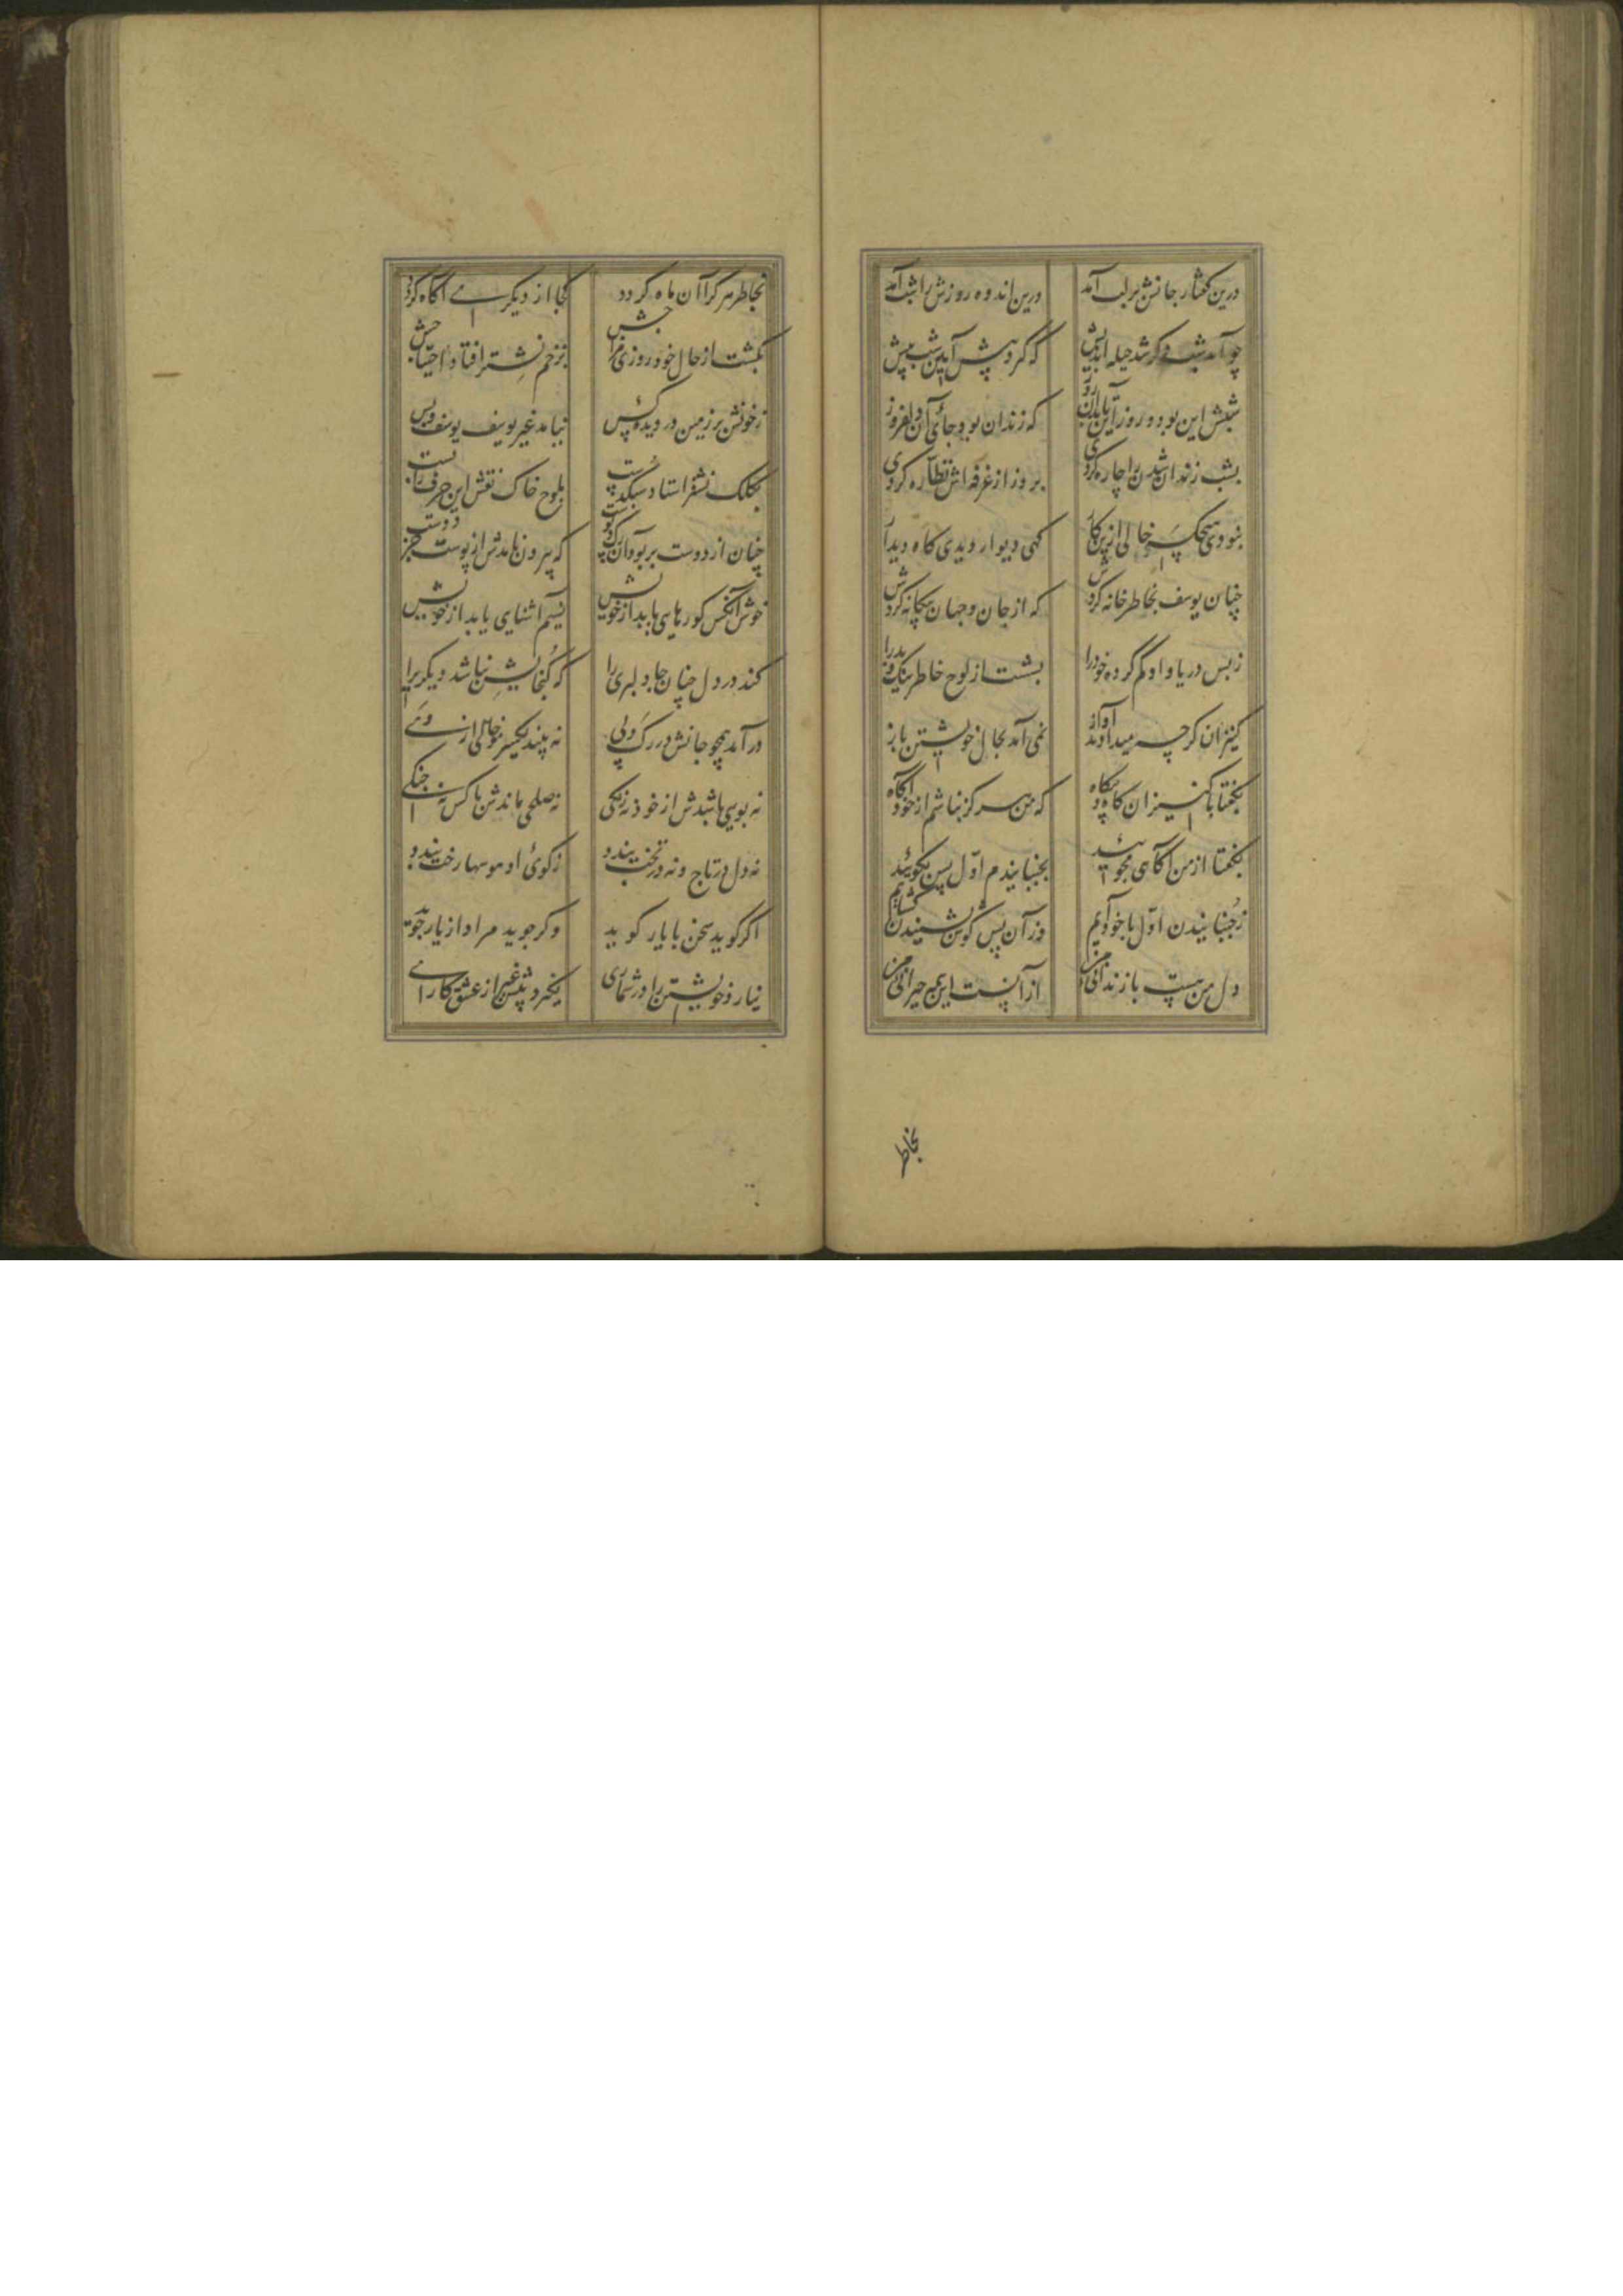 درین گفتار جانش بر لب آمد درین اندوه روزش را شب آمد
چو آمد شب دگر شد حیله اندیش که گردد پیش آیین شب پیش
شبش این بود و روز آیین بدان روز که زندان بود جای آن دل افروز
بشب زندان شدن را چاره کردی بروز از غرفه اش نظاره کردی
نبودی هیچکس خالی ازین کار گهی دیوار دیدی گاه دیدار
چنان یوسف بخاطر خانه کردش که از جان و جهان بیگانه کردش
ز بس در یاد او گم کرده خود را بشست از لوح خاطر نیک و بد را
کنیزان گرچه میدادند آواز نمی آمد بحال خویشتن باز
بگفتا با کنیزان گاه و بیگاه که من هرگز نباشم از خود آگاه
بگفتار از من آگاهی مجویید بجنبانیدم اول پس بگویید
ز جنبانیدن اول با خود آیم وز آن پس گوش شنیدن گشایم
دل من هست با زندانی من از آنست این همه حیرانی من
بخاطر
بخاطر هر کرا آن ماه گردد کجا از دیگری آگاه گردد
بگشت از حال خود روزی مزاجش بزخم نشتر افتاد احتیاجش
ز خونش بر زمین در دیده کس نیامد غیر یوسف یوسف و بس
بکلک نشتر استاد سبک دست بلوح خاک نقش این حرف را بست
چنان از دوست پر بود آن رگ و پوست که بیرون نامدش از پوست جز دوست
خوش آنکس کو رهایی یابد از خویش نسیم آشنایی یابد از خویش
کند در دل چنان جا دلبری را که گنجایش نباشد دیگری را
درآمد همچو جانش در رگ و پی نه بیند یکسر مو خالی از وی
نه بویی باشدش از خود نه رنگی نه صلحی باندش با کس نه جنگی
نه دل در تاج و نه در تخت بندد ز کوی او هوسها رخت بندد
اگر گوید سخن با یار گوید وگر جوید مراد از یار جوید
نیارد خویشتن را در شماری نگیرد پیش غیر از عشق کاری